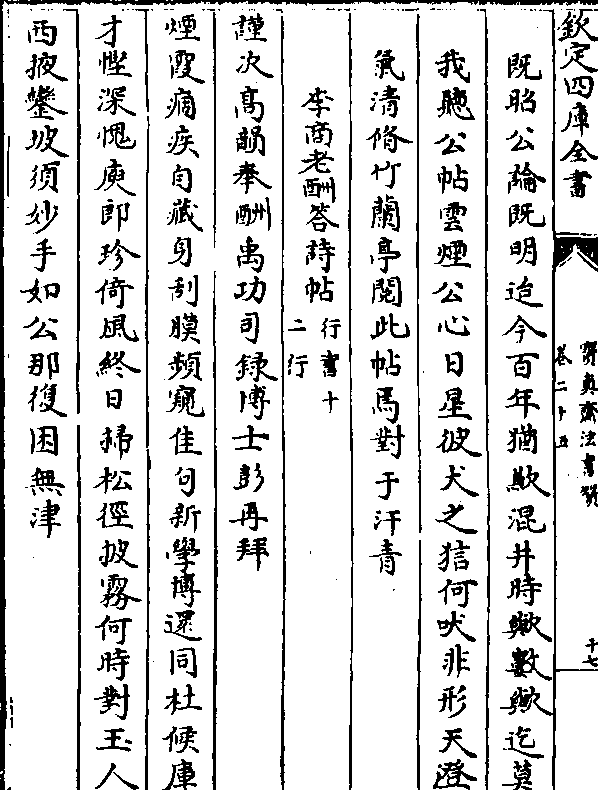 欽定四庫全書
寳真齋法書贊
卷二十五
十七
既昭公論既明迨今百年猶歟混井時歟數歟迄莫
我聽公帖雲煙公心日星彼犬之狺何吠非形天澄
氣清脩竹蘭亭閱此帖焉對于汗青
李商老酬答詩帖
行書十
二行
謹次高韻奉酬禹功司録博士彭再拜
煙霞痼疾自藏身刮膜頻窺佳句新學博還同杜候庫
才慳深愧庾郎珍倚風終日掃松徑披霧何時對玉人
西掖鑾坡須妙手如公那復困無津